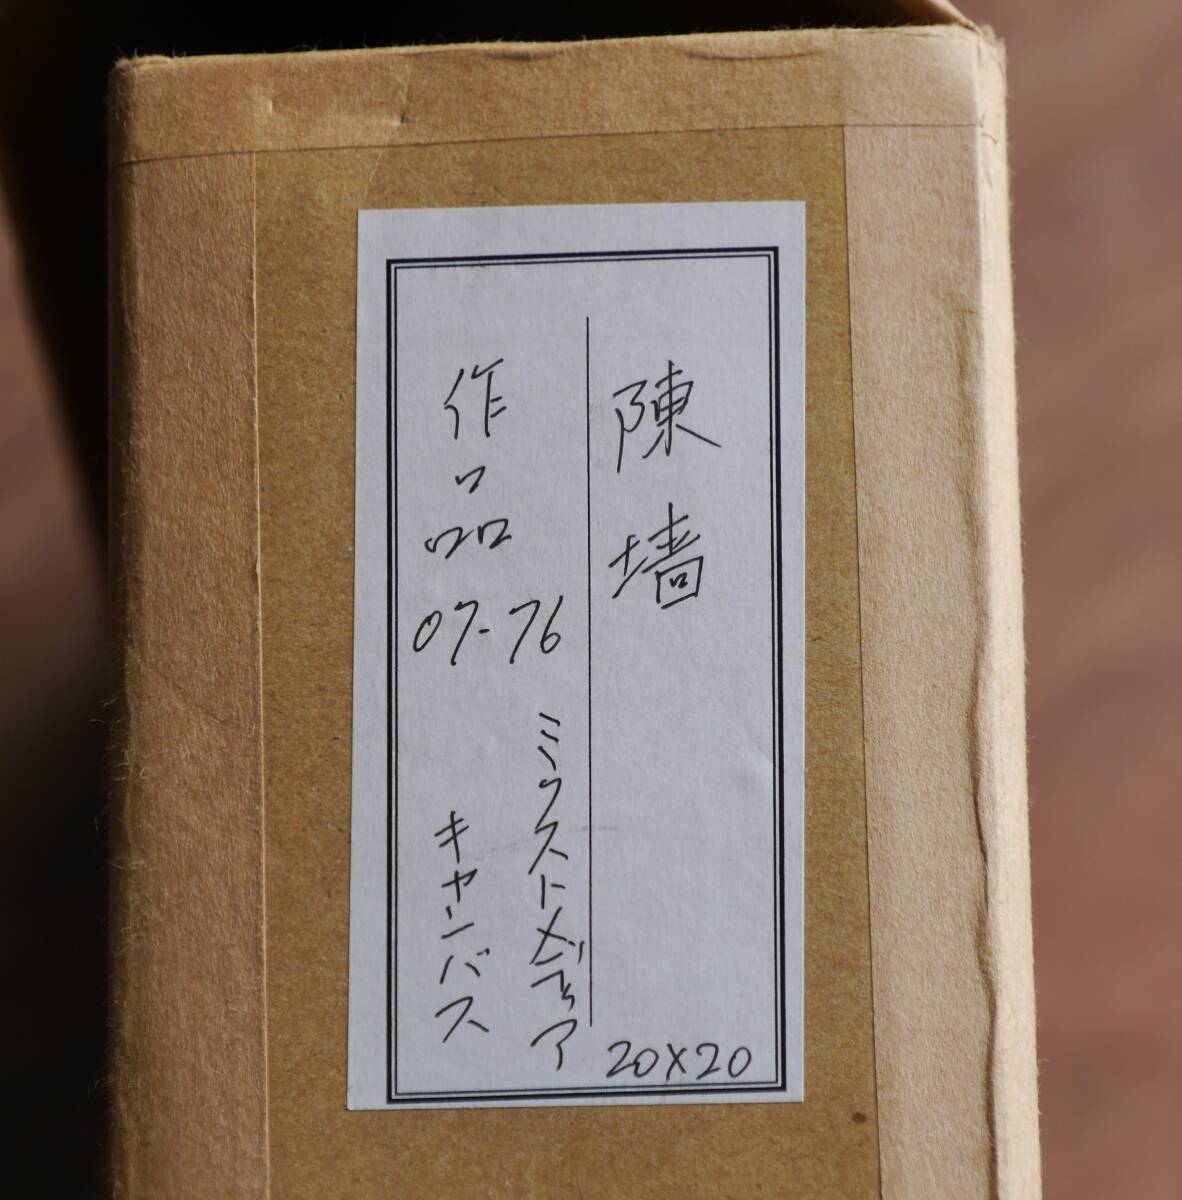 陳墻
20×20
作品
07-76
ミックストメディア
キャンバス